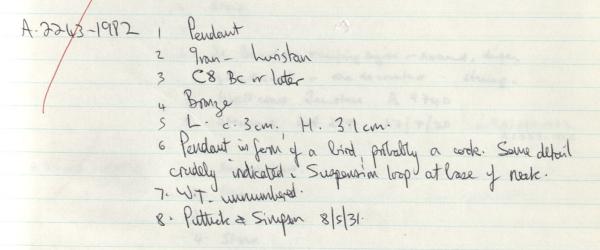 A.2243-1982 1 Pendant
2 Iran - Luristan
3 C8 BC or later
4 Bronze
5 L. c. 3cm, H. 3.1cm.
6. Pendant in form of a bird, probably a cock. Some detail
crudely indicated. Suspension loop at base of neck.
7. WT. unnumbered.
8. Puttick & Simpson 8/5/31.